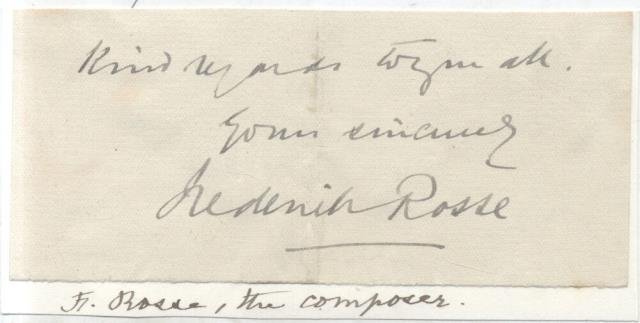 Kind regards to you all.
Yours sincerely
Frederick Rosse
Fr. Rosse, the composer.